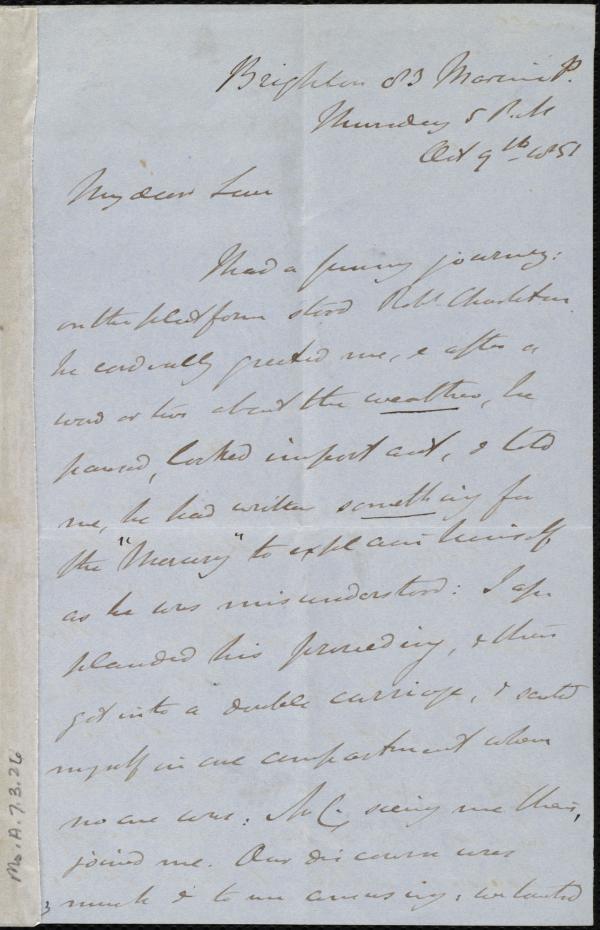 Brighton 83 Marine P.
Thursday 5 P.M
Oct 9th 1851
My dear
I had a funny journey:
on the platform stood Robt. Charleton
he cordially greeted me, & after a
word or two about the weather, he
paused, looked important, & told
me, he had written something for
the "Mercury" to explain himself
as he was misunderstood: I ap-
plauded his proceeding, & then
got into a double carriage, & seated
myself in one compartment where
no one was: Mr C, seeing me there,
joined me. Our discourse was
much & to me amusing; we
Ms. A. 7. 3. 26
3